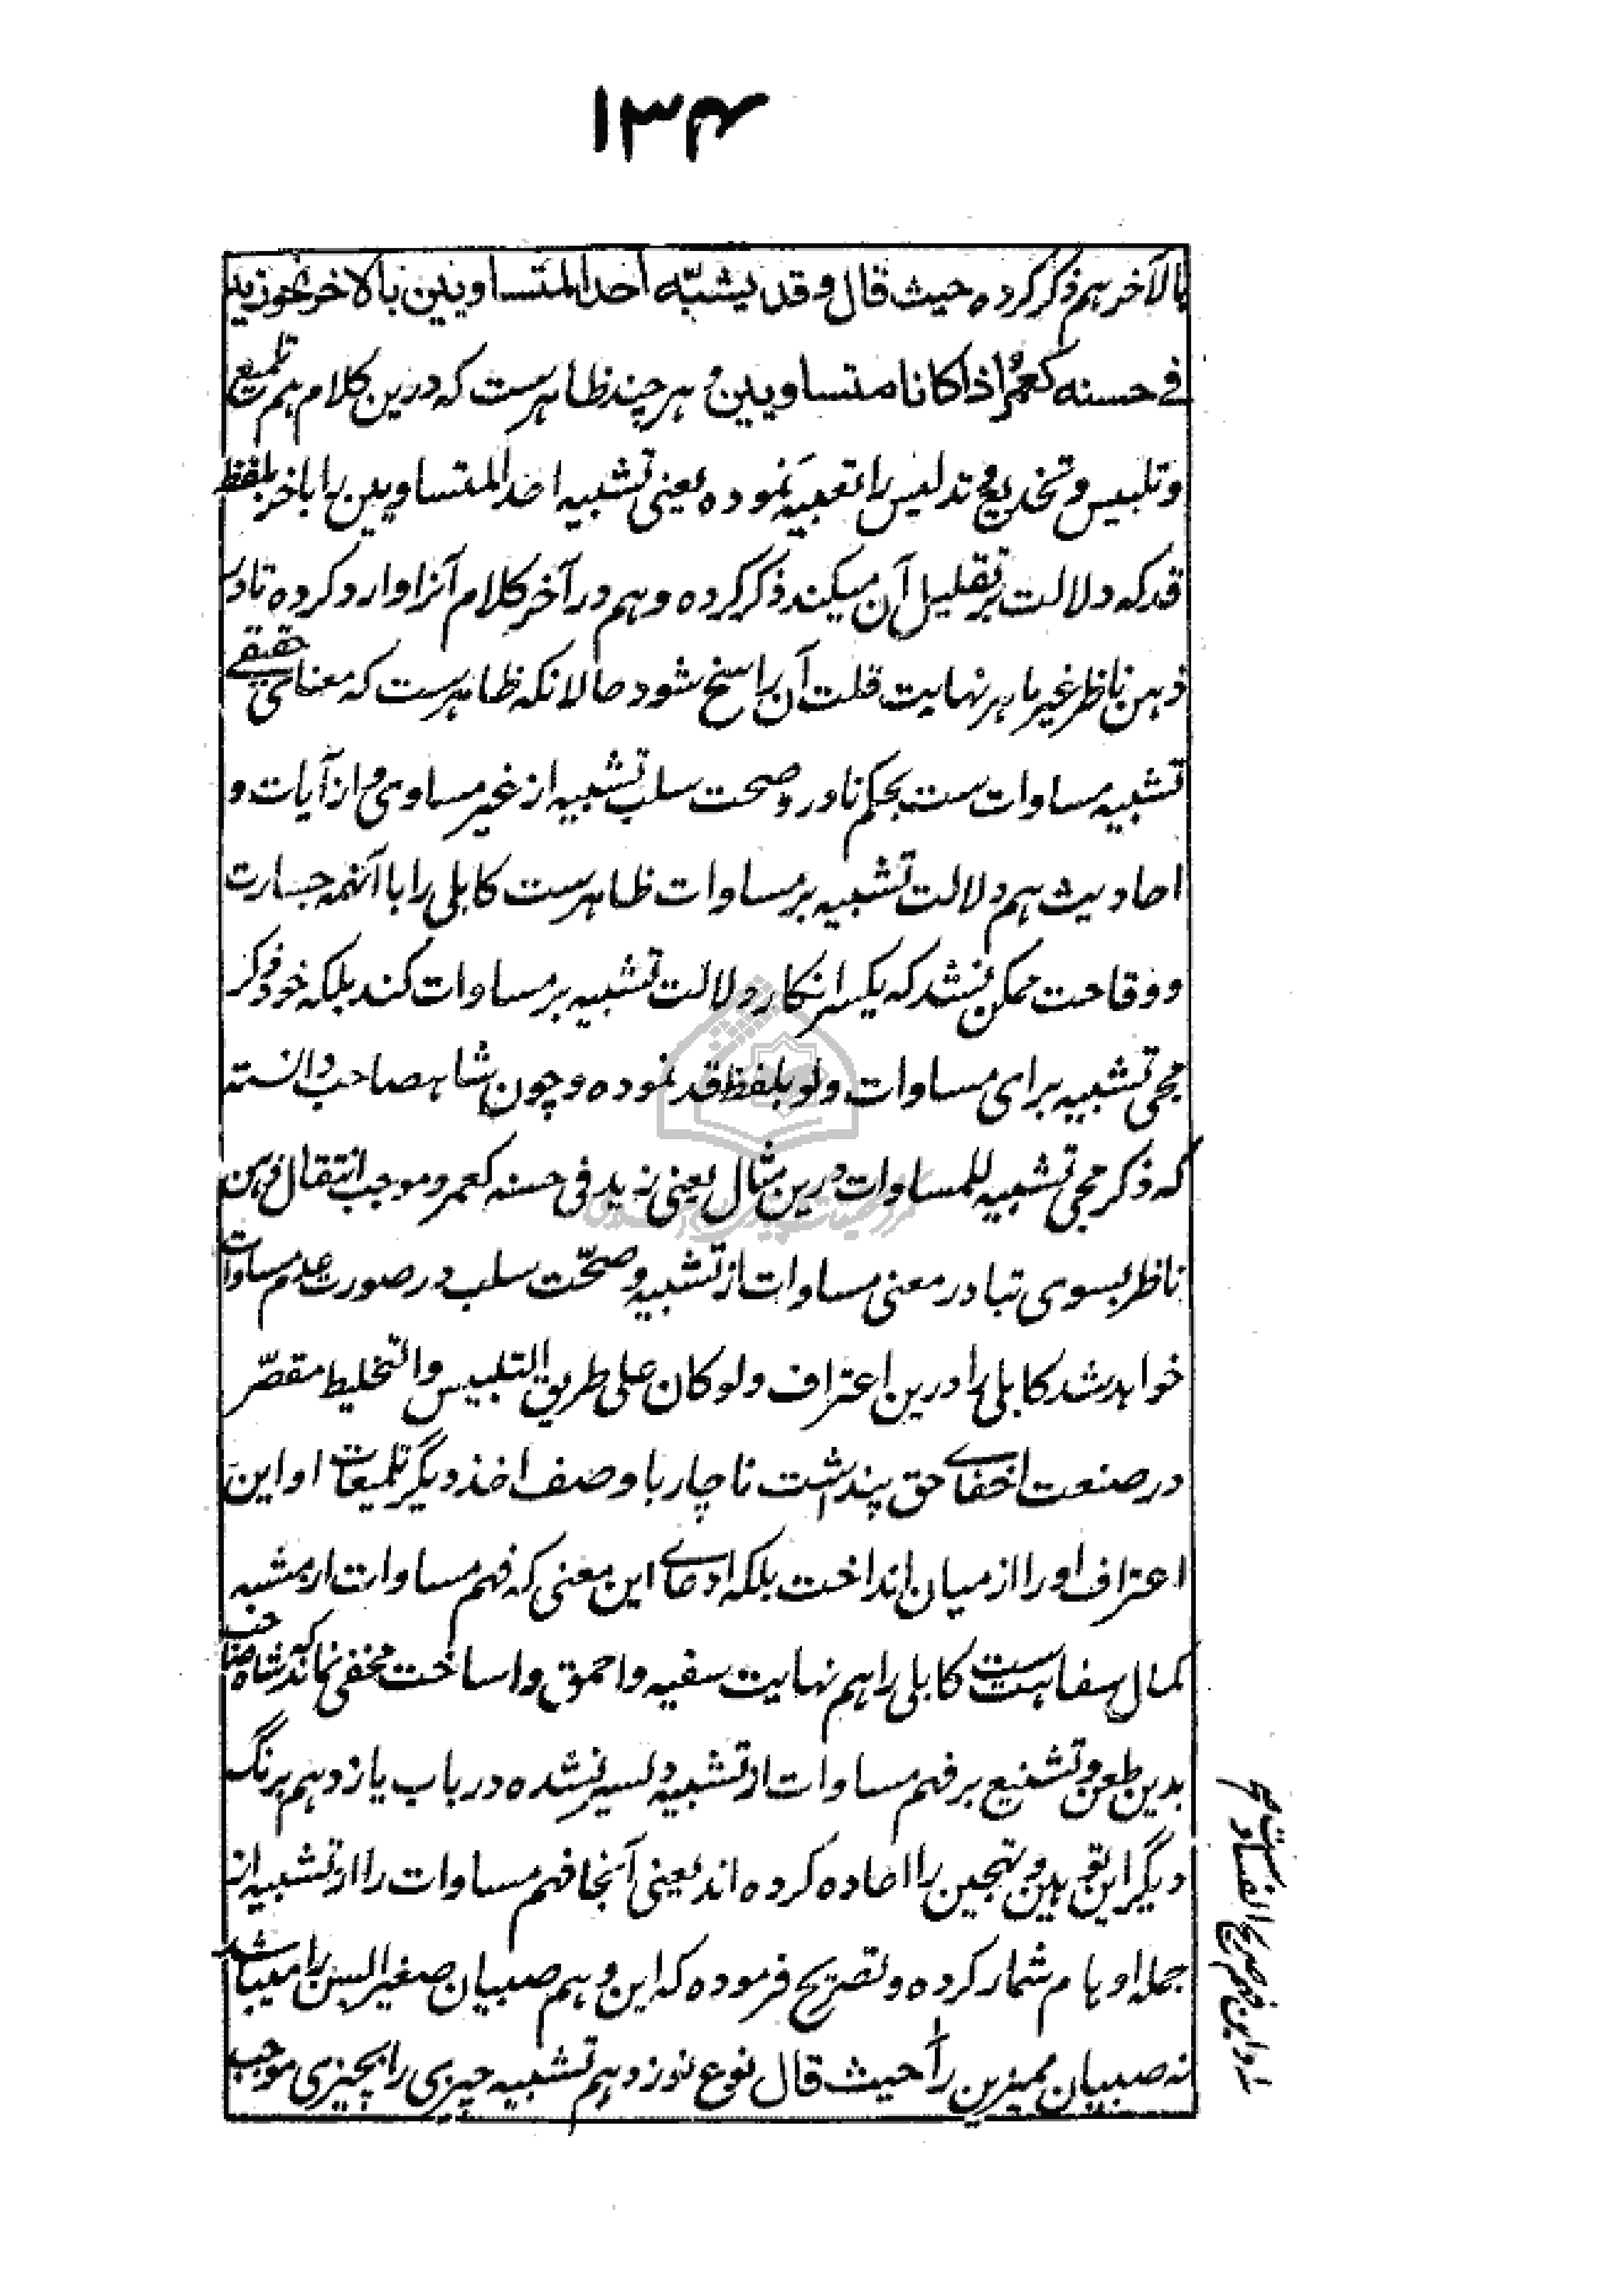 ۱۳۴
بالآخر هم ذکر کرده حیث قال و قد یشبّه احد المتساویین بالاخر نحو زید
فے حسنه کعمرو اذا کانا متساویین و هر چند ظاهرست که درین کلام هم تلمیع
و تلبیس و تخدیع و تدلیس را تعبیه نموده یعنی تشبیه احد المتساویین را باخر بلفظ
قد که دلالت بر تقلیل آن میکند ذکر کرده و هم در آخر کلام آنرا وارد کرده تا در
ذهن ناظر غیر ماهر نهایت قلت آن راسخ شود حالانکه ظاهرست که معنای حقیقے
تشبیه مساوات ست بحکم تبادر و صحت سلب تشبیه از غیر مساوی و از آیات و
احادیث هم دلالت تشبیه بر مساوات ظاهرست کابلی را با آنهمه جسارت
و وقاحت ممکن نشد که یکسر انکار دلالت تشبیه بر مساوات کند بلکه خود ذکر
مجی تشبیه برای مساوات ولو بلفظ قد نموده و چون شاهصاحب دانستند
که ذکر مجی تشبیه للمساوات درین مثال یعنی زید فی حسنه کعمرو موجب انتقال ذهن
ناظر بسوی تبادر معنی مساوات از تشبیه و صحّت سلب در صورت عدم مساوات
خواهد شد کابلی را درین اعتراف ولو کان علی طریق التلبیس والتخلیط مقصّر
در صنعت اخفاے حق پنداشت ناچار با وصف اخذ دیگر تلمیعات او این
اعتراف او را از میان انداخت بلکه ادعاے این معنی که فهم مساوات از مشبه
کمال سفاهت ست کابلی را هم نهایت سفیه و احمق وا ساخت مخفی نماند که شاه صاحب
بدین طعن و تشنیع بر فهم مساوات از تشبیه دلسیر نشده در باب یازدهم برنگ
دیگر این توهین و تهجین را اعاده کرده اند یعنی آنجا فهم مساوات را از تشبیه از
جمله اوهام شمار کرده و تصریح فرموده که این وهم صبیان صغیر السن را میباشد
نه صبیان ممیزین را حیث قال نوع نوزدهم تشبیه چیزی را بچیزی موجب